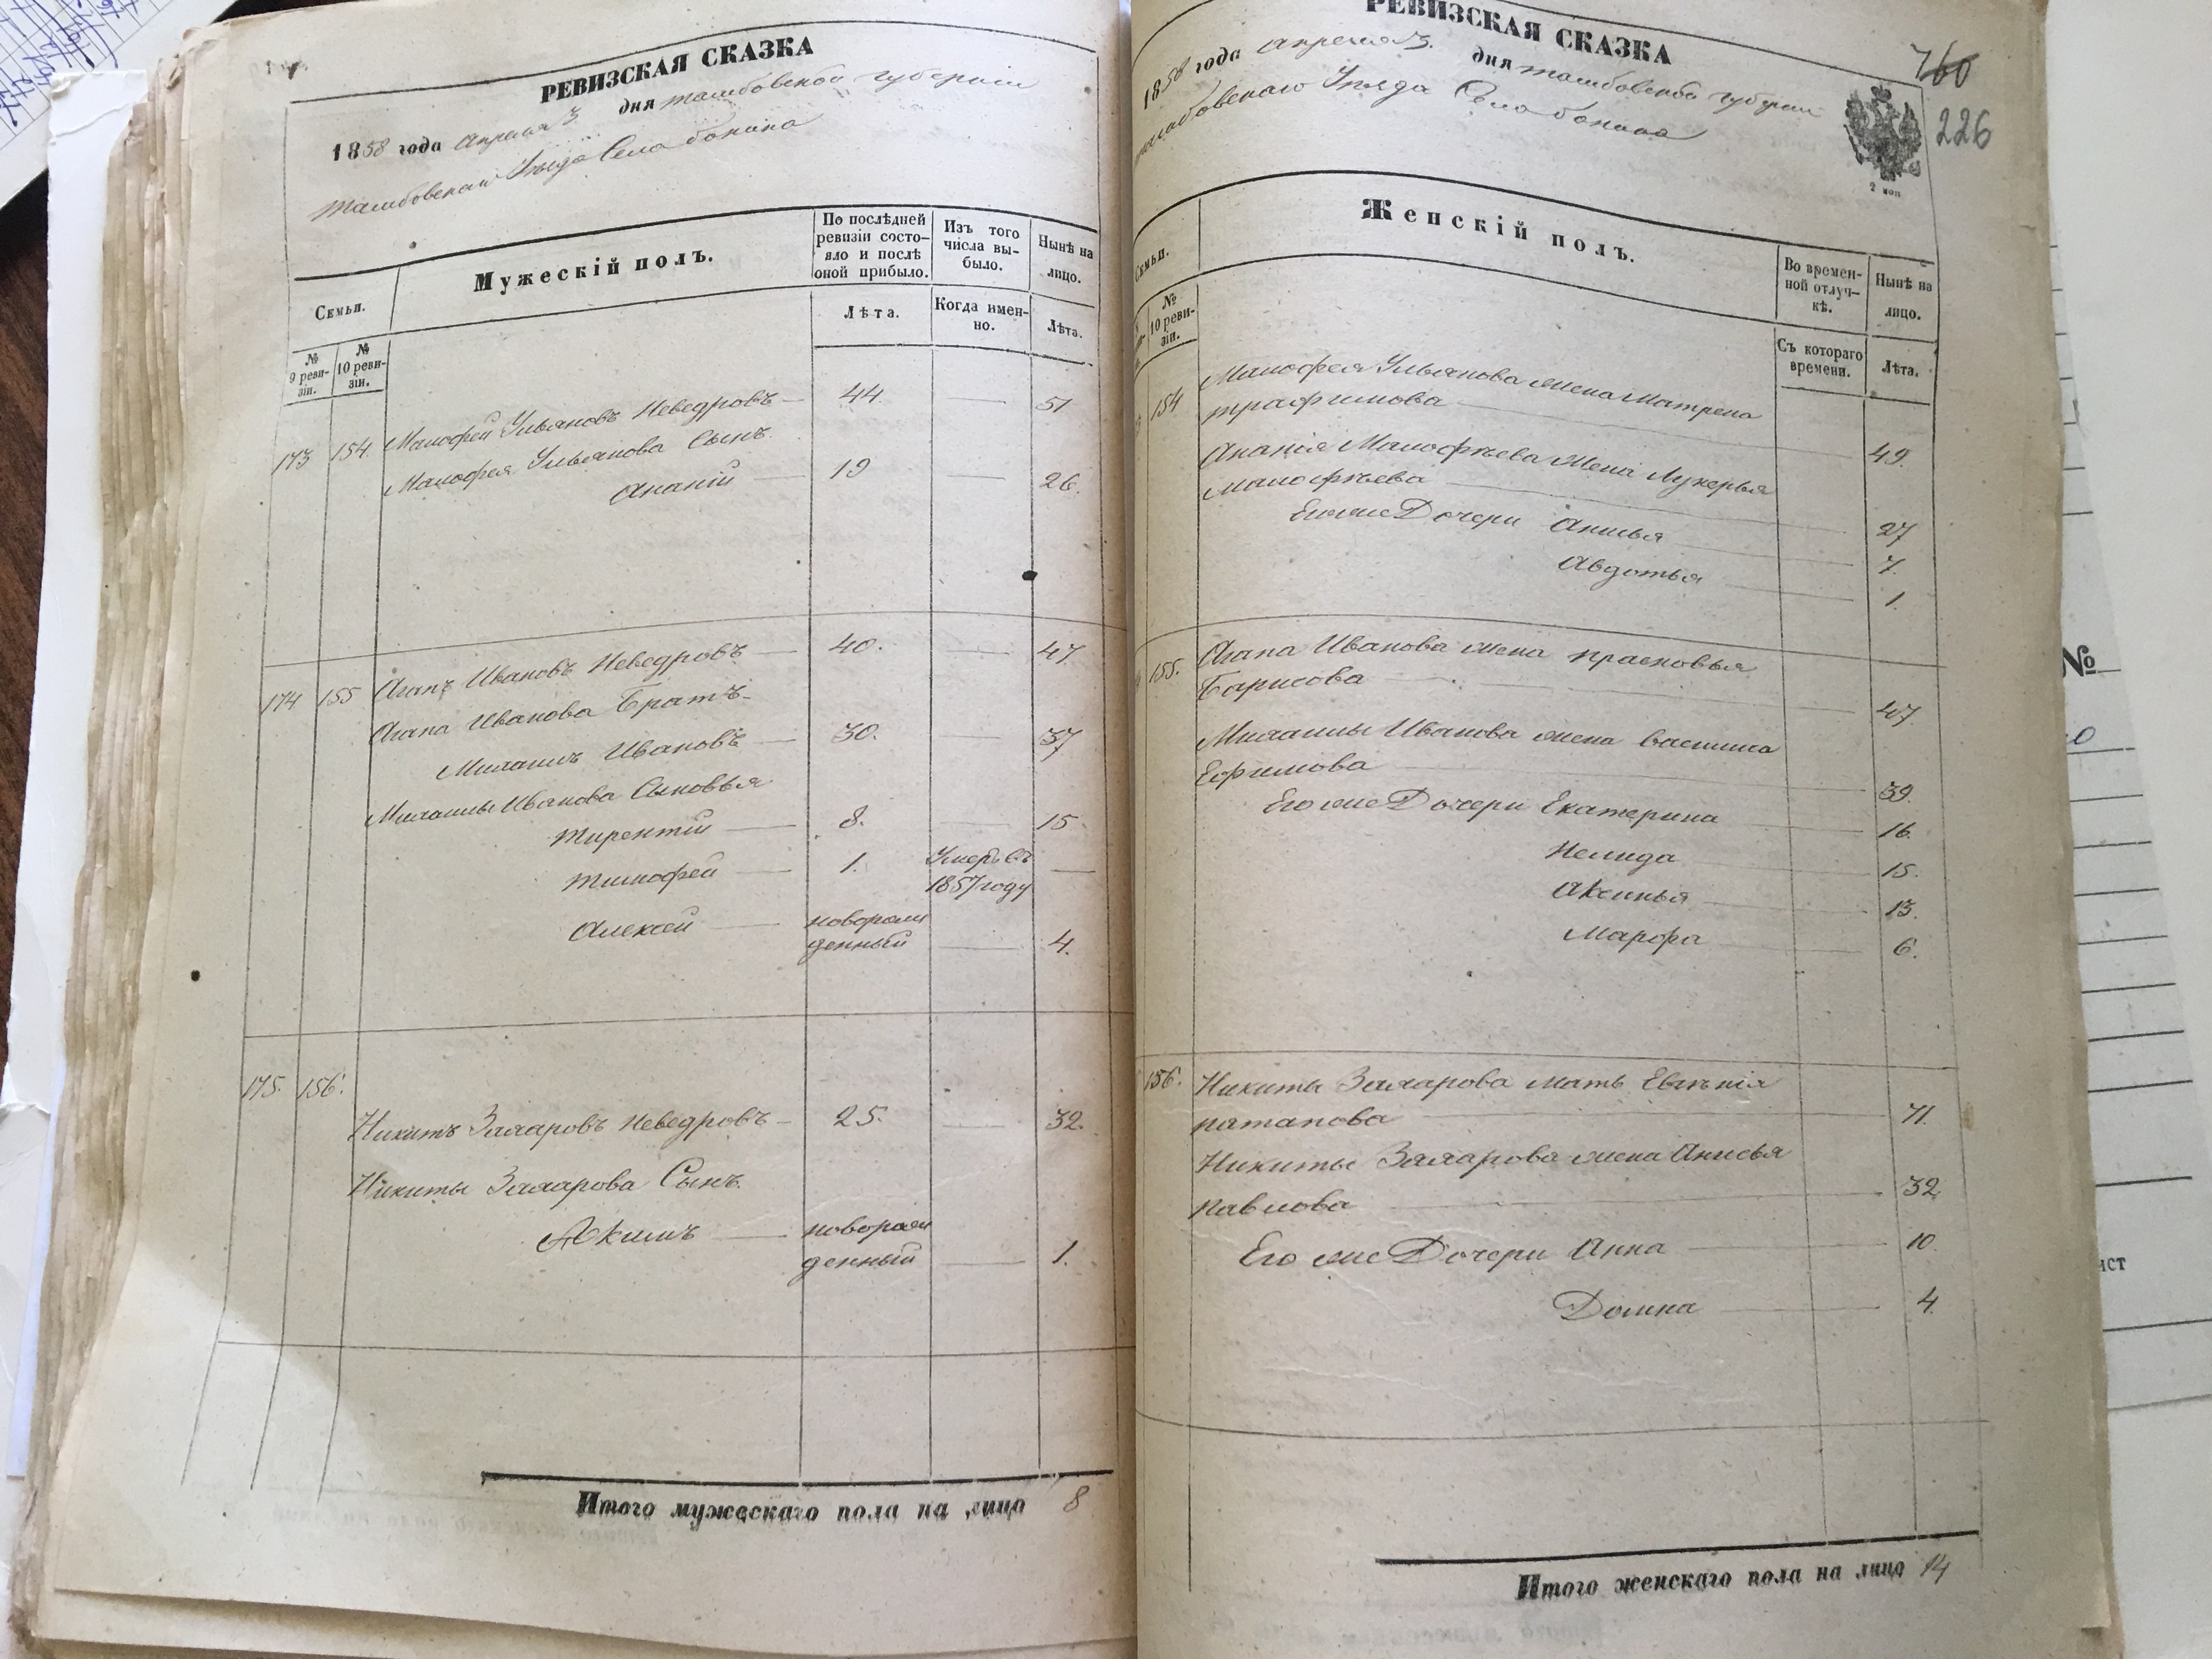 РЕВИЗСКАЯ СКАЗКА
1858 года апреля 3 дня тамбовской губернии
тамбовскаго Уезда Села
Семьи.
Мужескій полъ.
По послѣдней ревизіи состо-
яло и послѣ оной прибыло.
Изъ того числа вы-
было.
Нынѣ на лицо.
Лѣта.
Когда имен-
но.
Лѣта.
№ 9 реви-
зіи.
№ 10 реви-
зіи.
173 154. Малофей Ульяновъ Неведровъ — 44 — 51
Малофея Ульянова Сынъ
Ананій — 19 — 26.
174 155 Агапъ Ивановъ Неведровъ — 40. — 47
Агапа Иванова Братъ
Ивановъ — 30. — 37
Иванова Сыновья
тирентій — 8. — 15
тимофей — 1. Умеръ въ 1857 году —
Алексей — новорож
денный — 4.
175. 156.
Никитъ Захаровъ Неведровъ — 25. — 32.
Никиты Захарова Сынъ
Акимъ — новорож
денный — 1.
Итого мужескаго пола на лицо 8
РЕВИЗСКАЯ СКАЗКА
1858 года апреля 3. дня тамбовской губернии
тамбовскаго Уезда Села
760
226
2 коп
Семьи.
Женскій полъ.
Во времен-
ной отлуч-
кѣ.
Нынѣ на лицо.
№ 10 реви-
зіи.
Съ котораго времени.
Лѣта.
154 Малофея Ульянова жена Матрена
трафимова — 49.
Ананія Малофѣева Жена Лукерья
Малофѣева — 27
Егоже Дочери Анисья — 7.
Авдотья — 1.
155. Агапа Иванова жена прасковья
Барисова — 47
Иванова жена Василиса
Ефимова — 39.
Его же Дочери Екатерина — 16.
15.
Аксинья — 13.
Марфа 6.
156. Никиты Захарова мать Евгѣнія
патапова — 71.
Никиты Захарова жена Анисья
павлова — 32
Его же Дочери Анна — 10.
Домна — 4.
Итого женскаго пола на лицо 14
№
ист